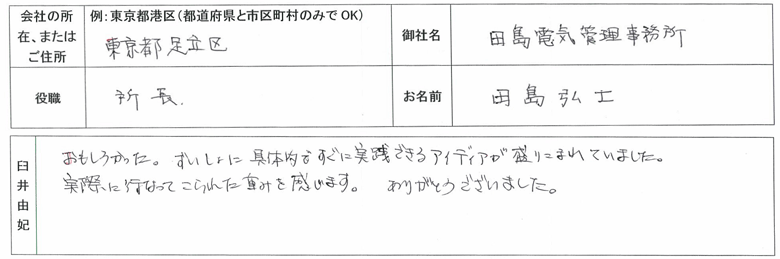 会社の所在、またはご住所
例:東京都港区(都道府県と市区町村のみでOK)
東京都足立区
御社名
田島電気管理事務所
役職
所長.
お名前
田島弘士
臼井由妃
おもしろかった。ずいしょに具体的ですぐに実践できるアイディアが盛りこまれていました。
実際に行なってこられた重みを感じます。 ありがとうございました。